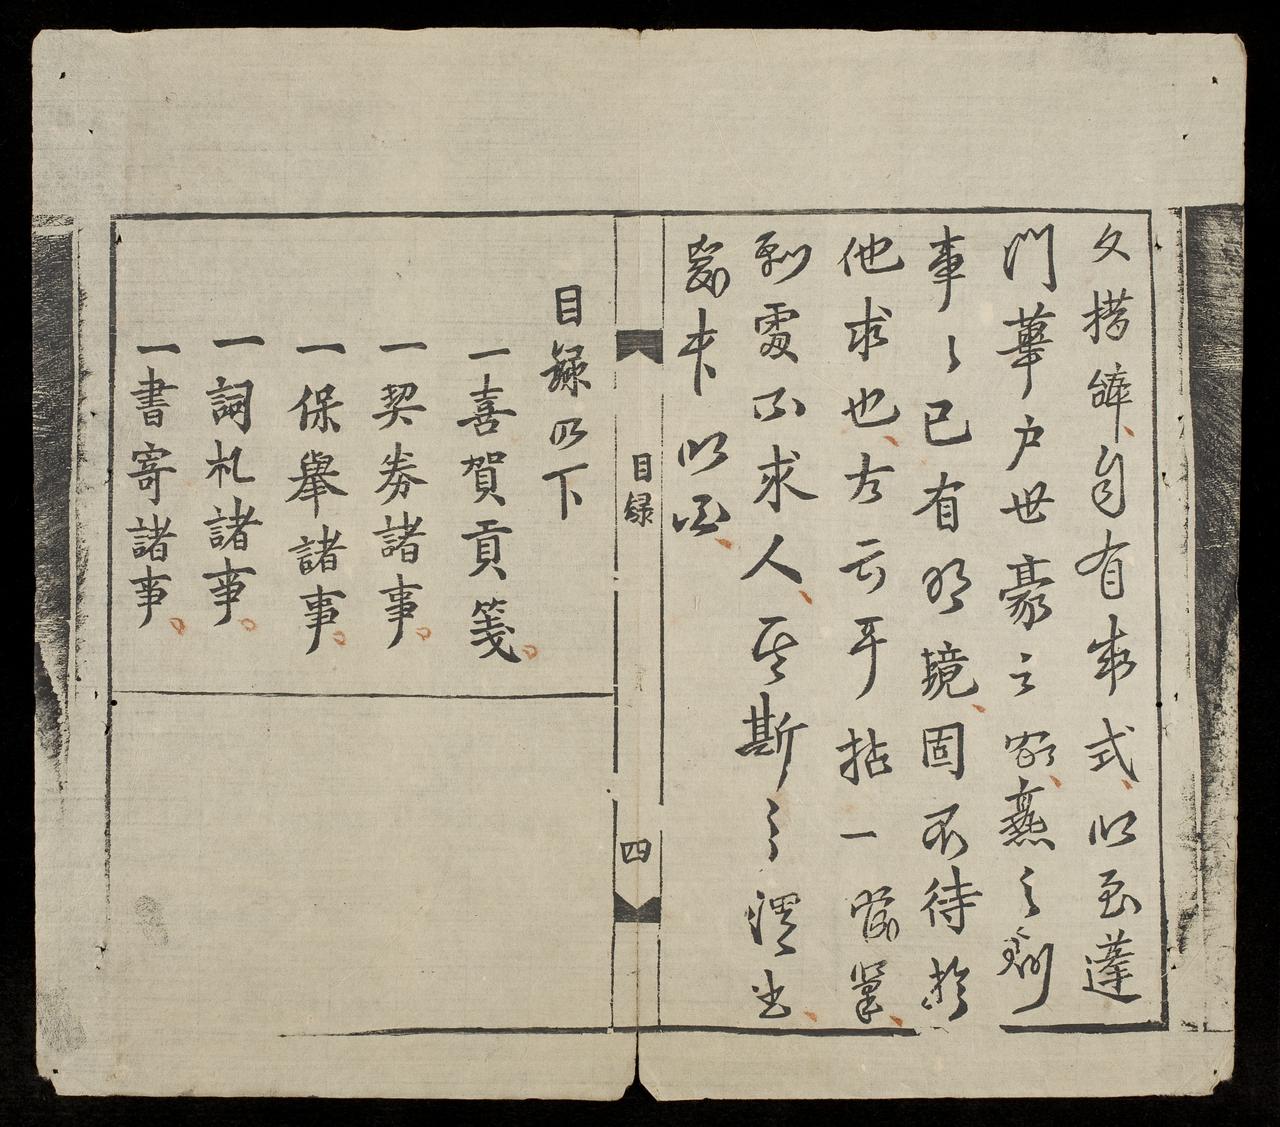 文措辞自有成式以至蓬
門華户世豪之家熹之則
事〻已有明境固不待於
他求也古云耳拈一部筆
到處不求人其斯之謂也
以
目録
四
目録以下
一喜賀貢箋
一契券諸事
一保舉諸事
一詞札諸事
一書寄諸事